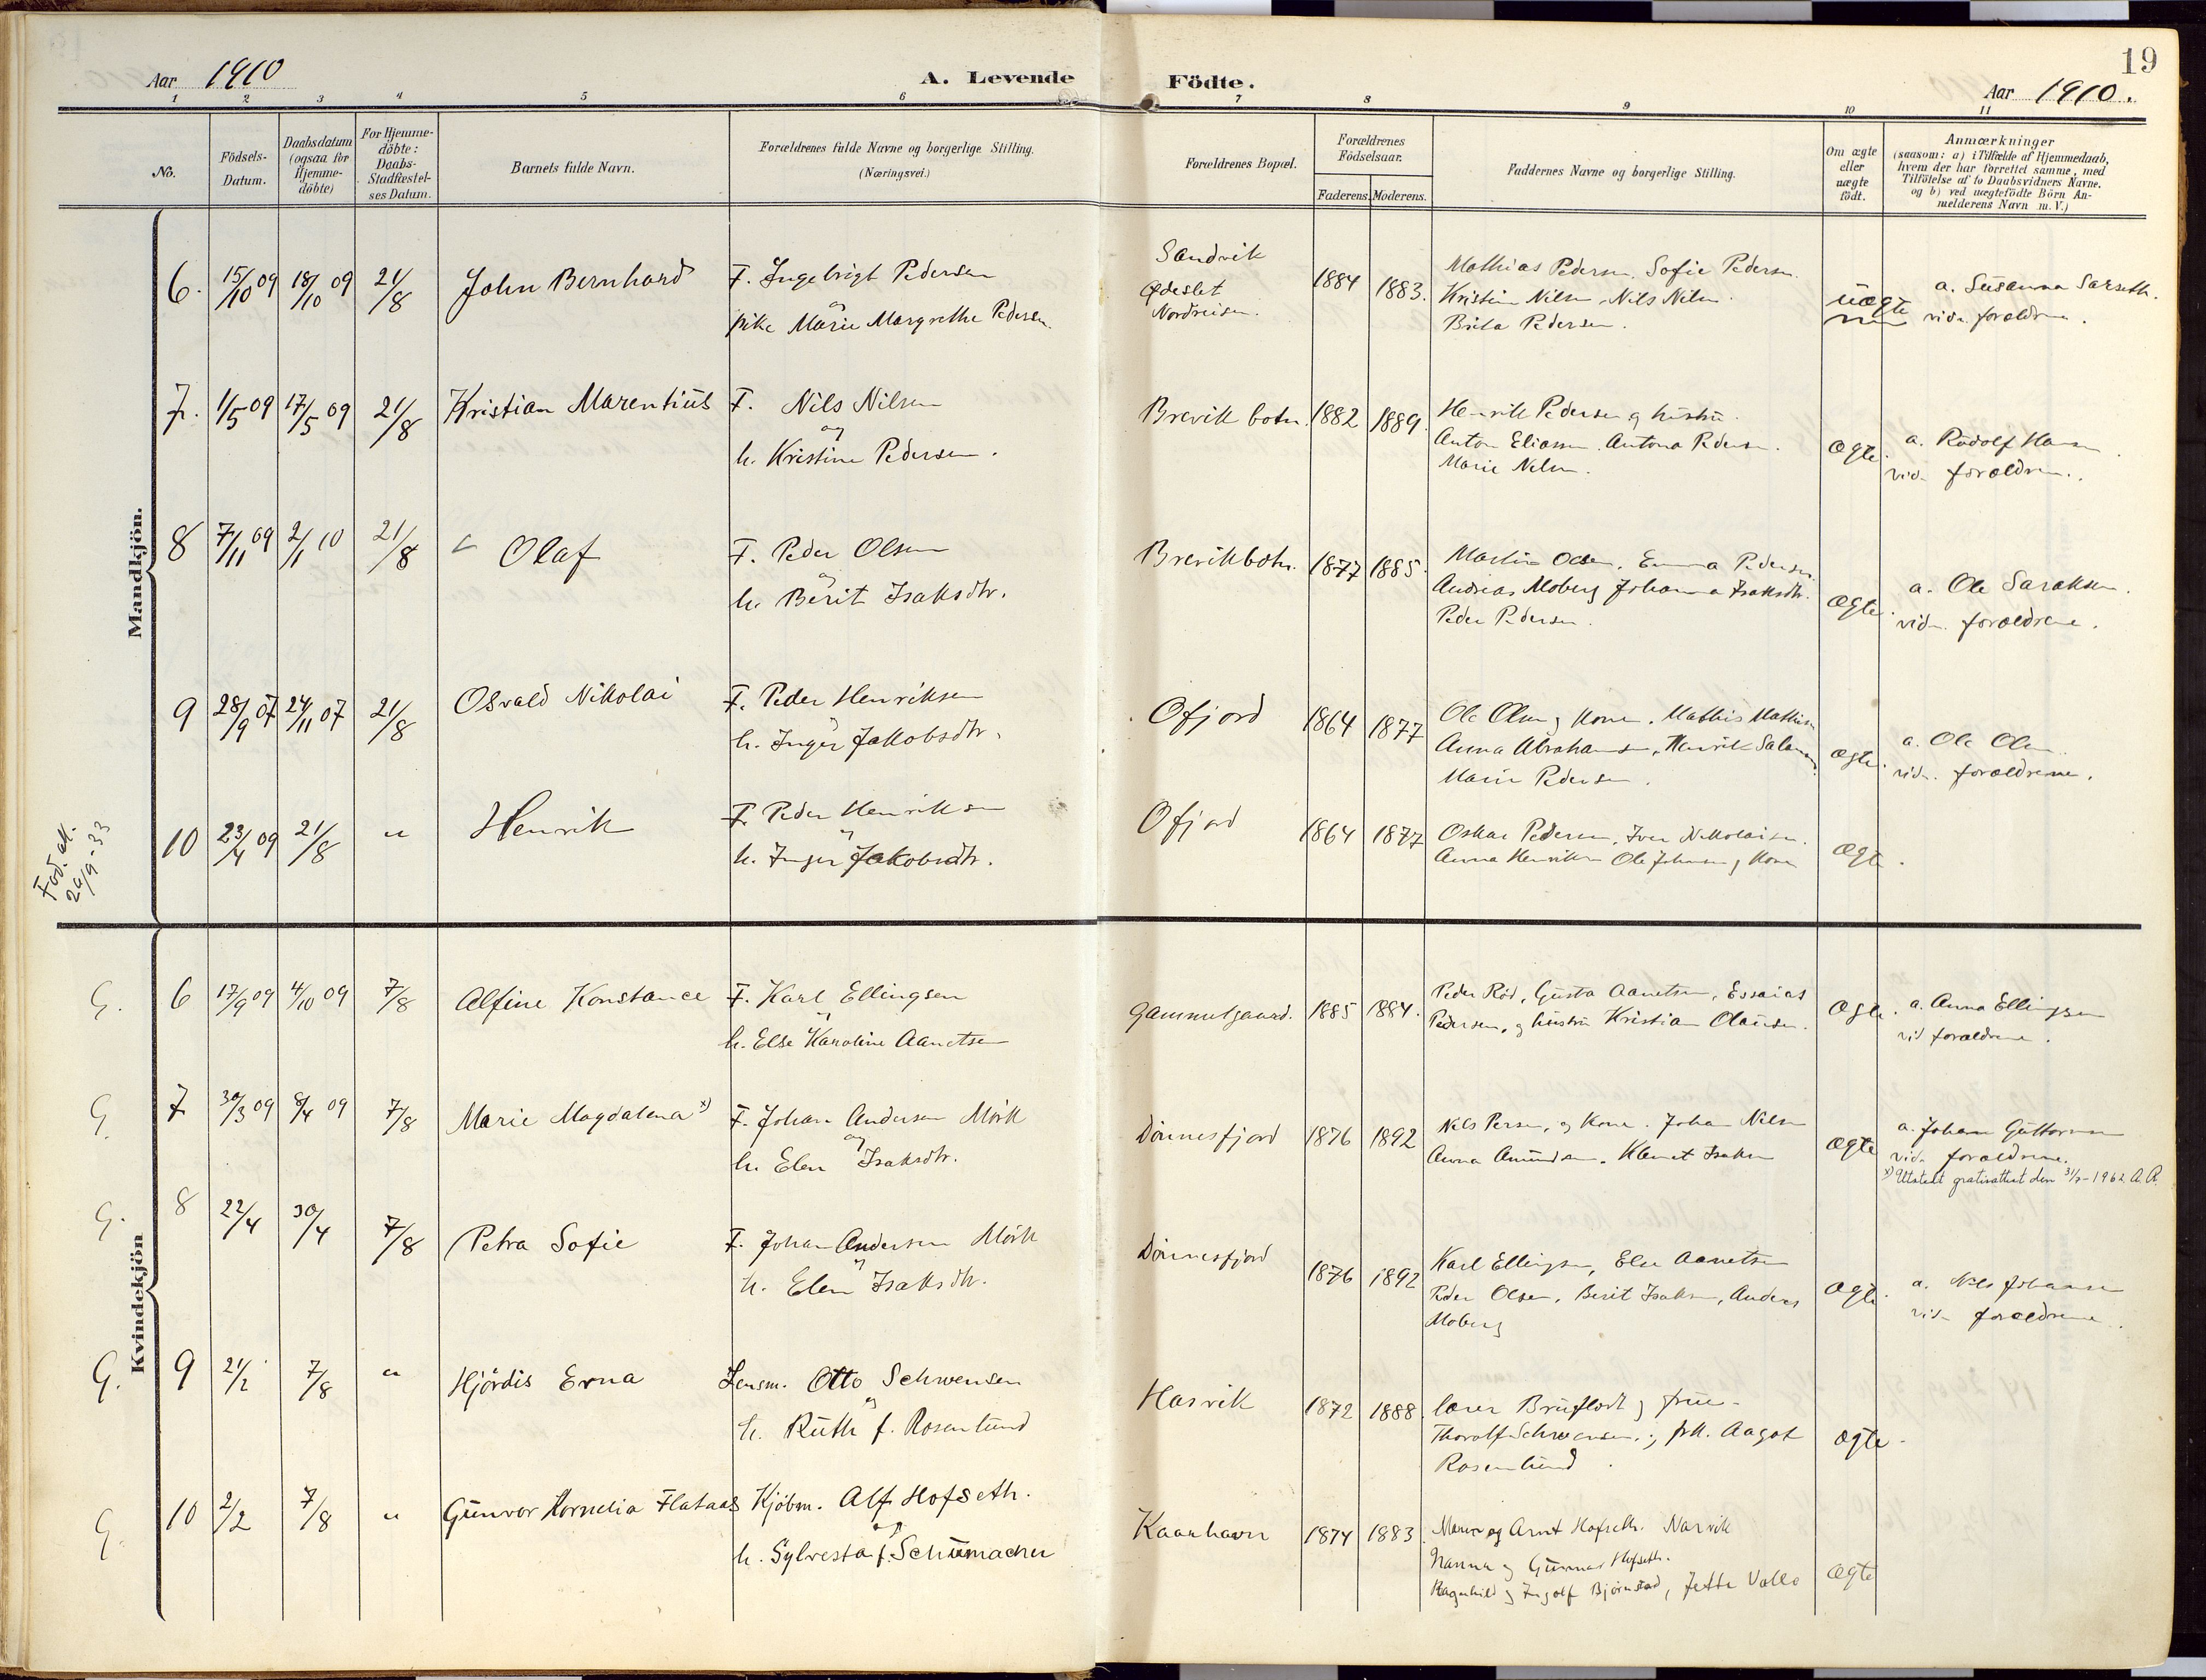 19
Aar 1910
A. Levende Födte.
Aar 1910.
1 2 3 4 5 6 7 8 9 10 11
No.
Födsels-Datum.
Daabsdatum (ogsaa for Hjemme-döbte)
For Hjemme-döbte: Daabs-Stadfæstel-ses Datum.
Barnets fulde Navn.
Forældrenes fulde Navne og borgerlige Stilling. (Næringsvei.)
Forældrenes Bopæl.
Forældrenes Födselsaar.
Faderens. Moderens.
Faddernes Navne og borgerlige Stilling.
Om ægte eller uægte födt.
Anmærkninger
(saasom: a) i Tilfælde af Hjemmedaab,
hvem der har forrettet samme, med
Tilföielse af to Daabsvidners Navne.
og b) ved uægtefödte Börn An-
melderens Navn m. V.)
Mandkjön.
6. 15/10 09 18/10 09 21/8 John Bernhard F. Ingebrigt Pedersen Sandvik 1884 1883. Mathias Pedersen. Sofie Pedersen. uægte a. Susanna Sarseth.
og
pike Marie Margrethe Pedersen. Ødeslet Nordreisen. Kristin Nilsen, Nils Nilsen. vidn. forældrene.
Brita Pedersen.
7. 1/5 09 17/5 09 21/8 Kristian Marentius F. Nils Nilsen Brevikbotn. 1882 1889. Henrik Pedersen og hustru. ægte. a. Rudolf Hansen.
og
h. Kristine Pedersen. Anton Eliassen. Antona Pedersen. vid. forældrene.
Marie Nilsen.
8 7/11 09 2/1 10 21/8 Olaf F. Peder Olsen Brevikbotn. 1877 1885. Martin Olsen. Emma Pedersen. ægte. a. Ole Saraksen.
og
h. Berit Isaksdtr. Andreas Moberg Johanna Isaksdtr. vidn. forældrene.
Peder Pedersen.
9 28/9 07 24/11 07 21/8 Osvald Nikolai F. Peder Henriksen Ofjord 1864 1877 Ole Olsen og Kone. Mathis Mathisen ægte. a. Ole Olsen
og
h. Inger Jakobsdtr. Anna Abrahamsen, Henrik Salamonsen vidn. forældrene.
Marie Pedersen.
Fød. att. 24/9-33
10 23/4 09 21/8 " Henrik F. Peder Henriksen Ofjord 1864 1877 Oskar Pedersen, Iver Nikolaisen. ægte.
og
h. Inger Jakobsdtr. Anna Henriksen Ole Johnsen og Kone
Kvindekjön
G. 6 17/9 09 4/10 09 7/8 Alfine Konstance F. Karl Ellingsen Gammelgaard. 1885 1884. Peder Röd, Gusta Aanetsen, Essaias ægte. a. Anna Ellingsen
og
h. Else Karoline Aanetsen Pedersen, og hustru Kristian Olausen. vid forældrene.
G. 7 30/3 09 8/4 09 7/8 Marie Magdalena x) F. Johan Andersen Mörk Dönnesfjord 1876 1892 Nils Persen, og Kone. Johan Nilsen ægte a. Johan Guttormsen
og
h. Elen Isaksdtr. Anna Amundsen. Klemet Isaksen vid. forældrene.
x) Utstedt gratisattest den 31/7-1962 A.R.
G. 8 22/4 30/4 7/8 Petra Sofie F. Johan Andersen Mörk Dönnesfjord 1876 1892 Karl Ellingsen, Else Aanetsen ægte. a. Nils Johansen
og
h. Elen Isaksdtr. Peder Olsen, Berit Isaksen, Anders vidn forældrene.
Moberg
G. 9 21/2 7/8 " Hjördis Erna Lensm. Otto Schwensen Hasvik 1872 1888. lærer Bruflodt og frue. ægte.
og
h. Ruth f. Rosenlund Thorolf Schwensen, og frk. Aagot
Rosenlund.
G. 10 2/2 7/8 " Gunvor Kornelia Flataas Kjöbm. Alf Hofseth. Kaarhavn 1874 1883. Marie og Arnt Hofseth. Narvik ægte
og
h. Sylvesta f. Schumacher Nanna og Gunnar Hofseth.
Ragnhild og Ingolf Björnstad, Jette Vallo